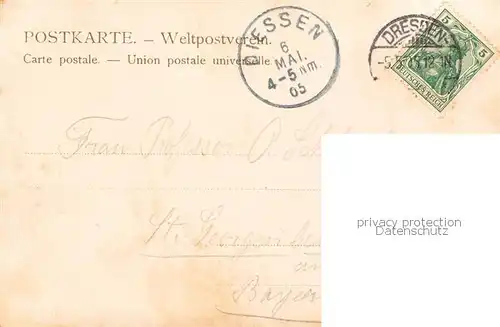 POSTKARTE. — Weltpostverein.
Carte postale. — Union postale universelle
DIESSEN
6
MAI.
4-5 Nm.
05
DRESDEN
5 5
DEUTSCHES REICH
Frau Professor O.
St. Georgen
Bayer
privacy protection
Datenschutz